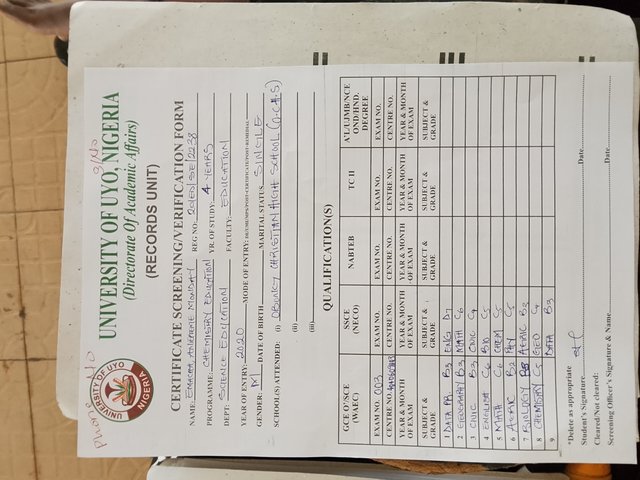 phone NO
9/NO
UNIVERSITY OF UYO
NIGERIA
UNIVERSITY OF UYO, NIGERIA
(Directorate Of Academic Affairs)
(RECORDS UNIT)
CERTIFICATE SCREENING/VERIFICATION FORM
NAME: MONDAY REG NO: 20/ED/SE/2238
PROGRAMME: CHEMISTRY EDUCATION YR. OF STUDY: 4 YEARS
DEPT: SCIENCE EDUCATION FACULTY: EDUCATION
YEAR OF ENTRY: 2020 MODE OF ENTRY:
GENDER: M DATE OF BIRTH MARITAL STATUS SINGLE
SCHOOL(S) ATTENDED: (i) CHRISTIAN HIGH SCHOOL
(ii)
(iii)
QUALIFICATION(S)
GCE O'/SSCE (WAEC) SSCE (NECO) NABTEB TC II A'L/IJMB/NCE OND/HND. DEGREE
EXAM NO. 003 EXAM NO. EXAM NO. EXAM NO. EXAM NO.
CENTRE NO. CENTRE NO. CENTRE NO. CENTRE NO. CENTRE NO.
YEAR & MONTH OF EXAM YEAR & MONTH OF EXAM YEAR & MONTH OF EXAM YEAR & MONTH OF EXAM YEAR & MONTH OF EXAM
SUBJECT & GRADE SUBJECT & GRADE SUBJECT & GRADE SUBJECT & GRADE SUBJECT & GRADE
1 DATA PR B3 ENG D7
2 GEOGRAPHY B3 MATH C6
3 CIVIC B3 CIVIC C4
4 ENGLISH C6 BIO C5
5 MATH C6 CHEM C5
6 AGRIC B2 PHY C5
7 BIOLOGY AGRIC B3
8 CHEMISTRY C5 GEO C4
9 DATA B3
*Delete as appropriate
Student's Signature Date
Cleared/Not cleared:
Screening Officer's Signature & Name Date